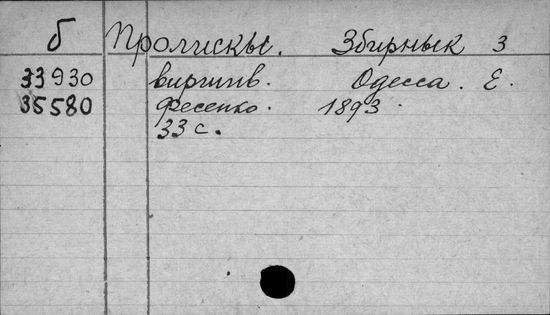 б Пролискы. Збирнык з
33930 виршив. Одесса. Е.
35580 Фесенко. 1893.
33 с.